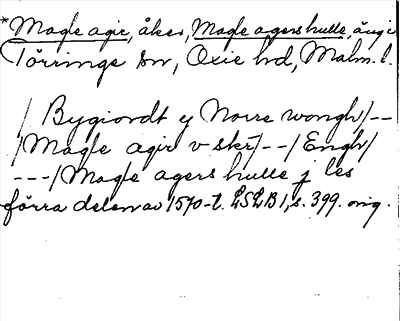 *Magle agir, åker, Magle agers hulle, äng i
Törringe sn, Oxie hd, Malm. l.
/ Bygiordt ej Norre wongh/--
/Magle agir v skr/--/Engh/
---/Magle agers hulle j les
förra delen av 1570-t. LSLB 1, s. 399. orig.